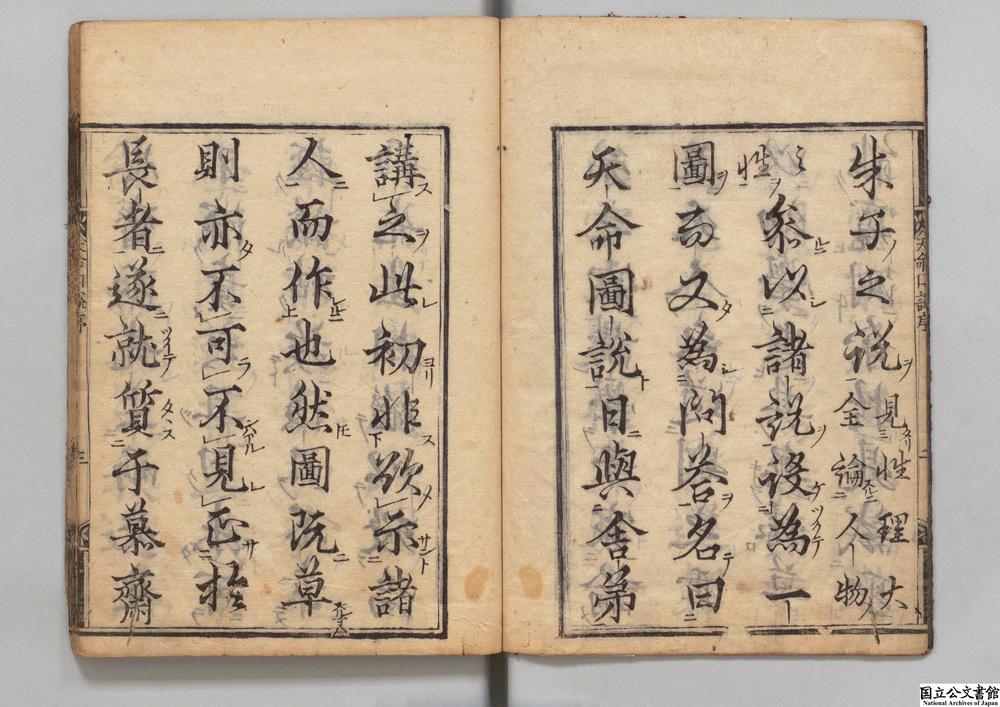 朱子之説見性理大全論人物
之性參以諸説設為一
圖而又為問答名曰
天命圖説日與舍弟
講之此初非欲示諸
人而作也然圖既草
則亦不可不見正於
長者遂就質于慕齋
国立公文書館
National Archives of Japan